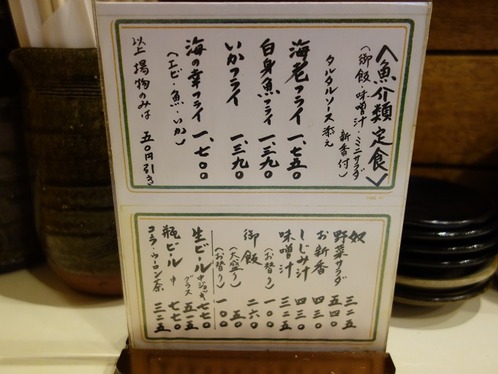 〈魚介類定食〉
(御飯・味噌汁・ミニサラダ
新香付)
タルタルソース添え
海老フライ 一、七五〇
白身魚フライ 一、三九〇
いかフライ 一、三九〇
海の幸フライ 一、七〇〇
(エビ・魚・いか)
以上 揚物のみは 五〇円引き
奴 三二五
野菜サラダ 五四〇
お新香 四三〇
しじみ汁 四三〇
味噌汁 三二五
(お替り) 一〇〇
御飯 二六〇
(大盛り) 五〇
(お替り) 一〇〇
生ビール 中ジョッキ 七七〇
グラス 五一五
瓶ビール 中 七七〇
コーラ・ウーロン茶 三二五